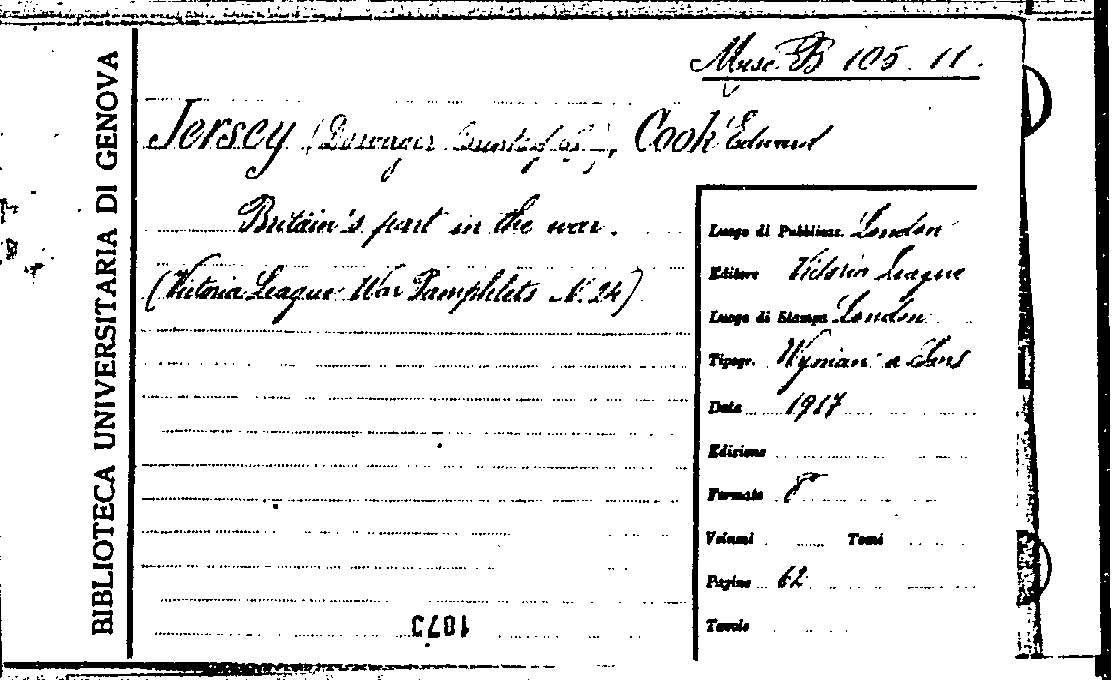 BIBLIOTECA UNIVERSITARIA DI GENOVA
Misc. B 105. 11.
Jersey (Dowager Countess of), Cook Edward
Britain's part in the war.
(Victoria League War Pamphlets N. 24)
Luogo di Pubblicaz. London
Editore Victoria League
Luogo di Stampa London
Tipogr. Wyman & Sons
Data 1917
Edizione
Formato 8°
Volumi Tomi
Pagine 62
Tavole